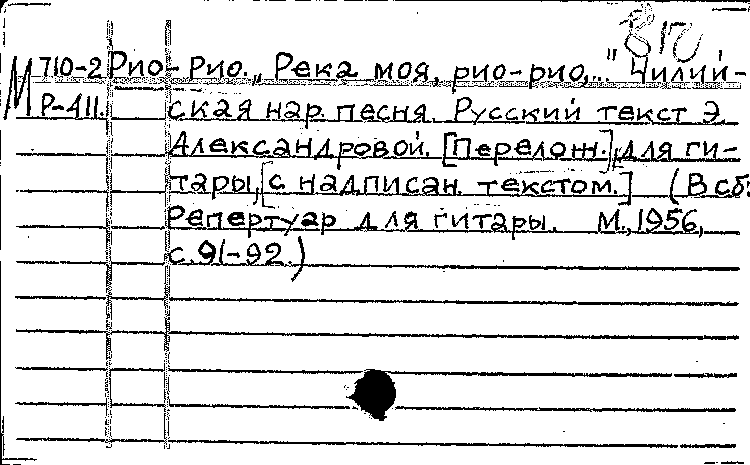 М 710-2 Рио-Рио. „Река моя, рио-рио,..." Чилий-
Р-411. ская нар. песня. Русский текст Э.
Александровой. [Перелож.] для ги-
тары, [с надписан. текстом.] (В сб:
Репертуар для гитары. М., 1956,
с. 91-92.)